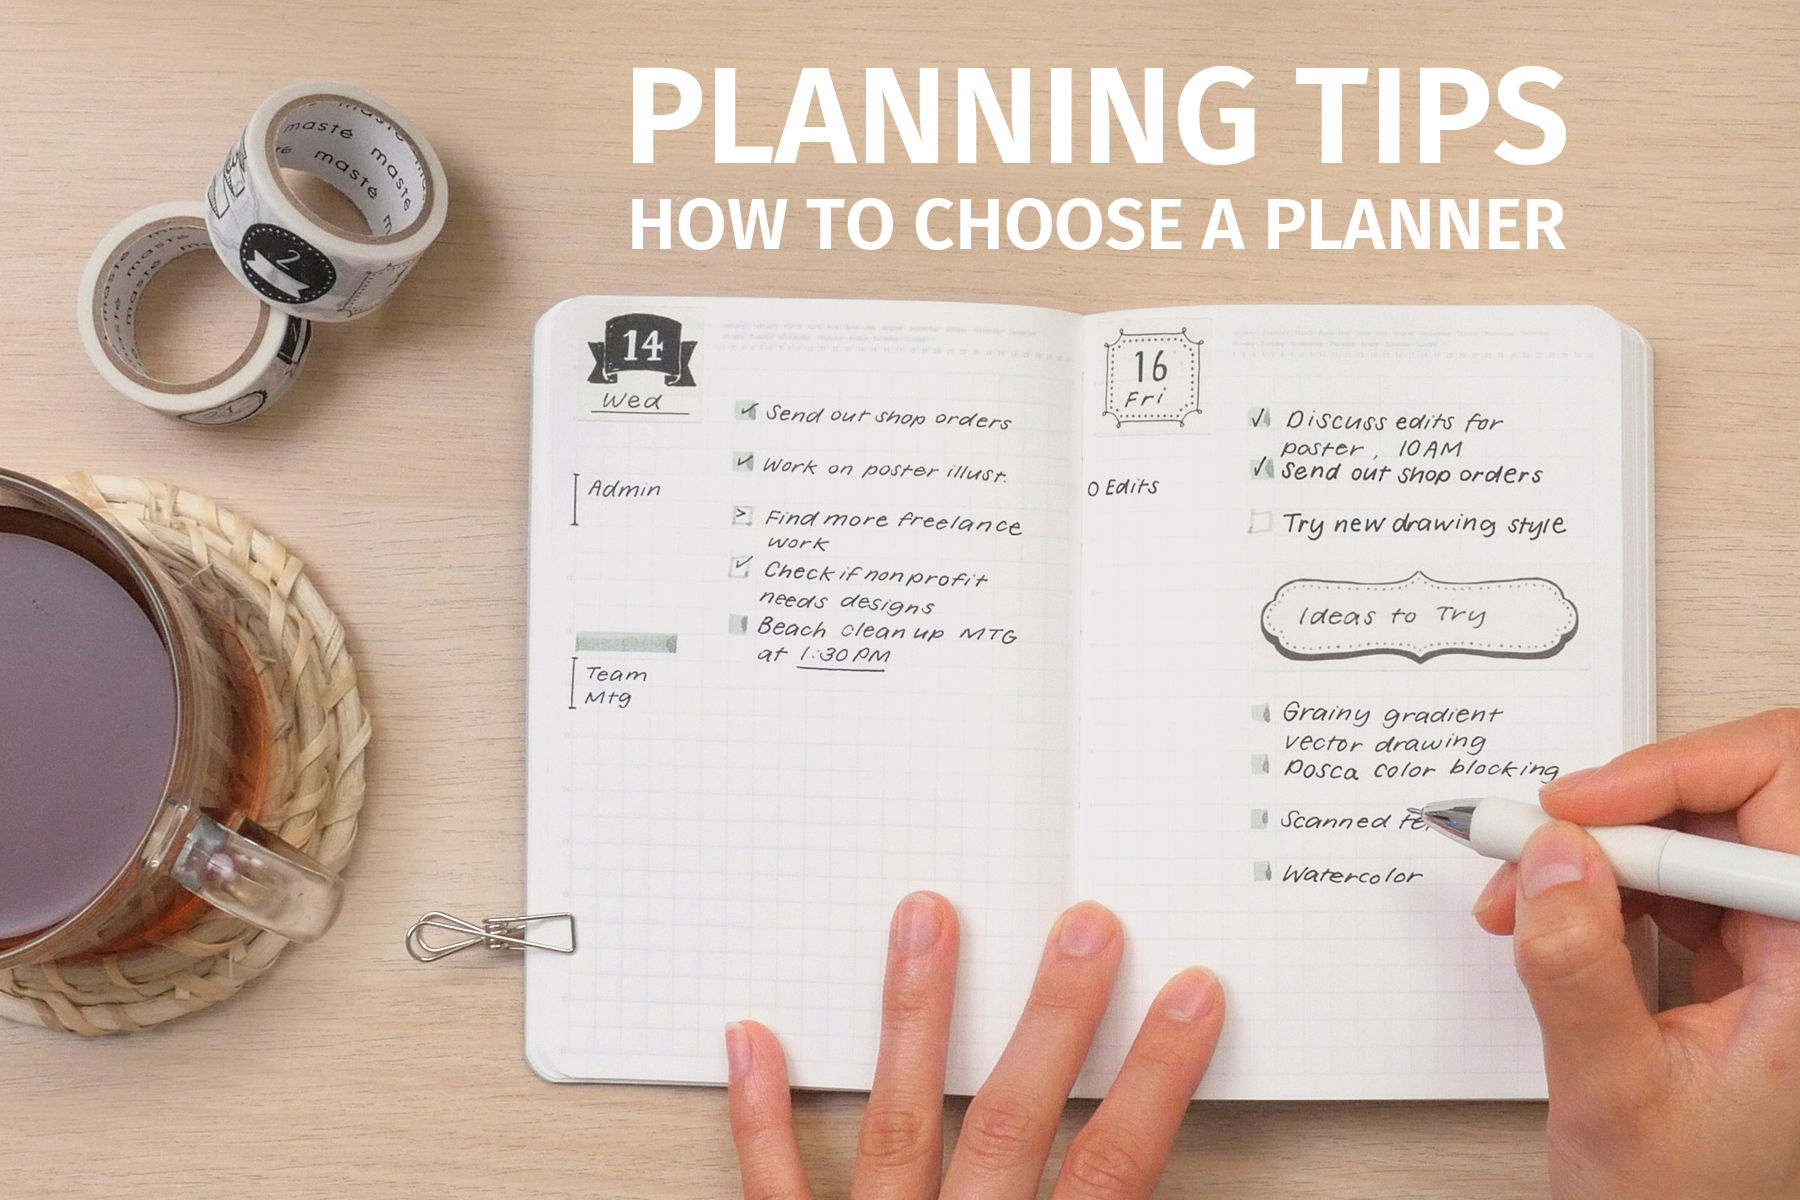 PLANNING TIPS
HOW TO CHOOSE A PLANNER
masté
masté
masté
masté
masté
2
14
Wed
Admin
Team
Mtg
Send out shop orders
Work on poster illust.
Find more freelance
work
Check if nonprofit
needs designs
Beach clean up MTG
at 1:30 PM
16
Fri
O Edits
Discuss edits for
poster, 10 AM
Send out shop orders
Try new drawing style
Ideas to Try
Grainy gradient
vector drawing
Posca color blocking
Scanned
Watercolor